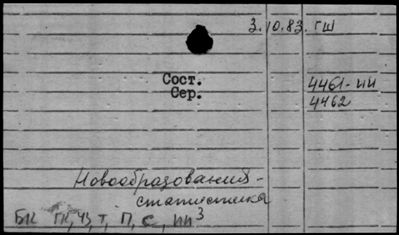 3.10.83. ГШ
Сост.
Сер.
4461-ИИ
4462
Новообразования -
статистика
БК ГК, ЧЗ, Т, П, С, ИИ³